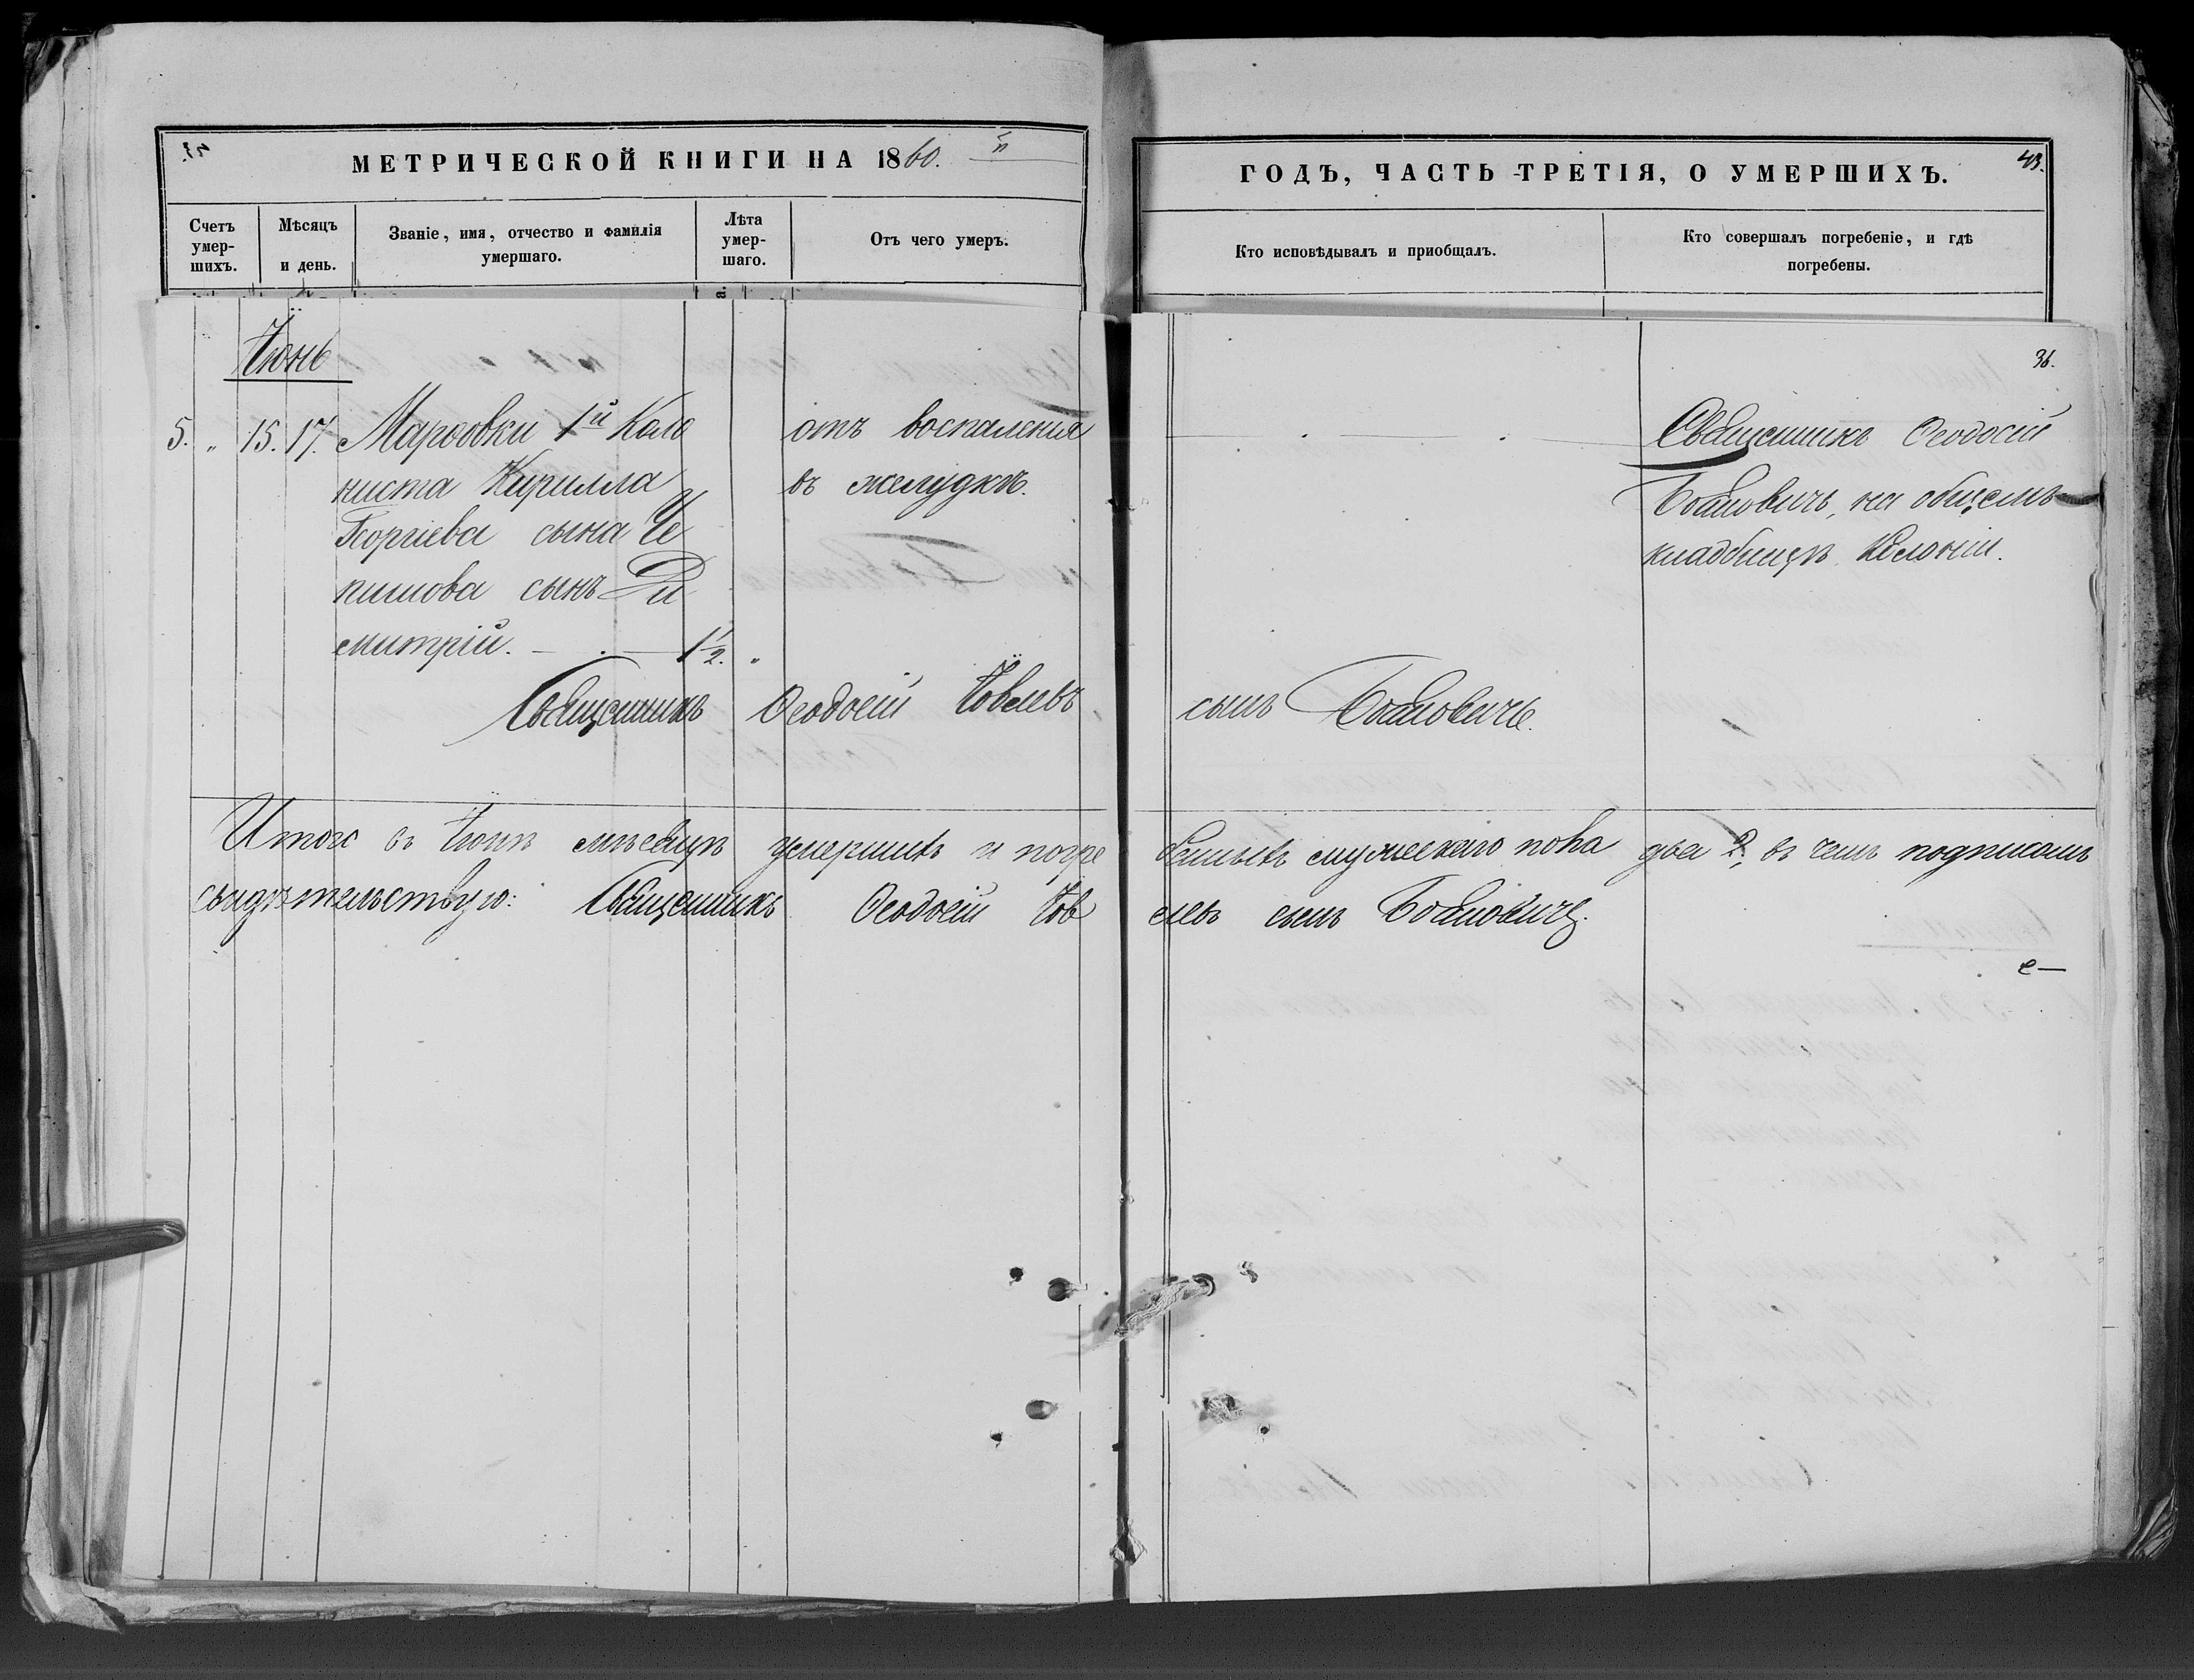 МЕТРИЧЕСКОЙ КНИГИ НА 1860.
ГОДЪ, ЧАСТЬ ТРЕТІЯ, О УМЕРШИХЪ.
43.
Счетъ умер- шихъ.
Мѣсяцъ и день.
Званіе, имя, отчество и фамилія умершаго.
Лѣта умер- шаго.
Отъ чего умеръ.
Кто исповѣдывалъ и приобщалъ.
Кто совершалъ погребеніе, и гдѣ погребены.
36.
Іюнь
5. " 15. 17. 1й Коло
ниста Кирилла
Георгіева сына Че
пишова сынъ Ди
митрій. 1 1/2. "
отъ воспаленія
въ желудкѣ.
Священникъ Ѳеодосій
Бойановичъ, на общемъ
кладбищѣ Колоніи.
Священникъ Ѳеодосій Іовлевъ сынъ Бойановичъ.
Итого въ Іюнѣ мѣсяцѣ умершихъ и погре бенныхъ мужескаго пола два 2, въ чемъ подписомъ
свидѣтельствую: Священникъ Ѳеодосій Іов левъ сынъ Бойановичъ.